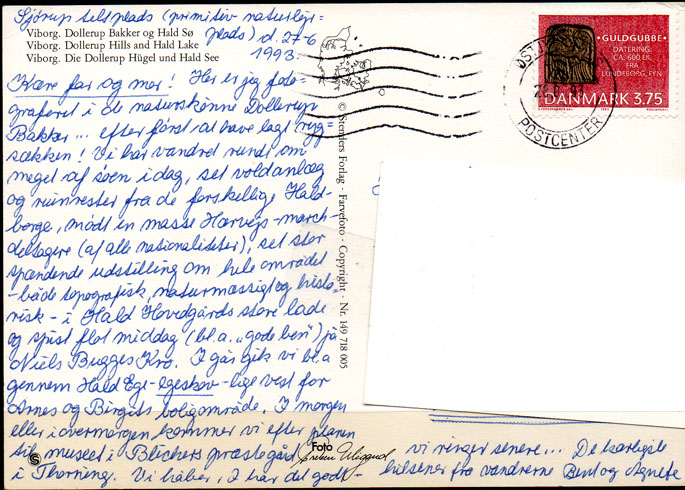 Sjørup teltplads (primitiv naturlejr-
plads) d. 27-6
1993.
Viborg. Dollerup Bakker og Hald Sø
Viborg. Dollerup Hills and Hald Lake
Viborg. Die Dollerup Hügel und Hald See
Kære far og mor! Her er jeg foto-
graferet i de naturskønne Dollerup
Bakker... efter først at have lagt ryg-
sækken! Vi har vandret rundt om
meget af søen i dag, set voldanlæg
og ruinrester fra de forskellige Hald-
borge, mødt en masse Hærvejs-march-
deltagere (af alle nationaliteter), set stor
spændende udstilling om hele området
- både topografisk, naturmæssigt og histo-
risk - i Hald Hovedgårds store lade
og spist flot middag (bl.a. "gode ben") på
Niels Bugges Kro. I går gik vi bl.a
gennem Hald Ege - egeskov - lige vest for
Arnes og Birgits boligområde. I morgen
eller i overmorgen kommer vi efter planen
til museet i Blichers præstegård
i Thorning. Vi håber, I har det godt -
vi ringer senere... De kærligste
hilsener fra vandrerne Bent og Agnete
© Stenders Forlag - Farvefoto - Copyright - Nr. 149 718 005
Foto
S
GULDGUBBE
DATERING:
CA. 600 EK.
FRA
LUNDEBORG, FYN
DANMARK 3.75
POSTCENTER